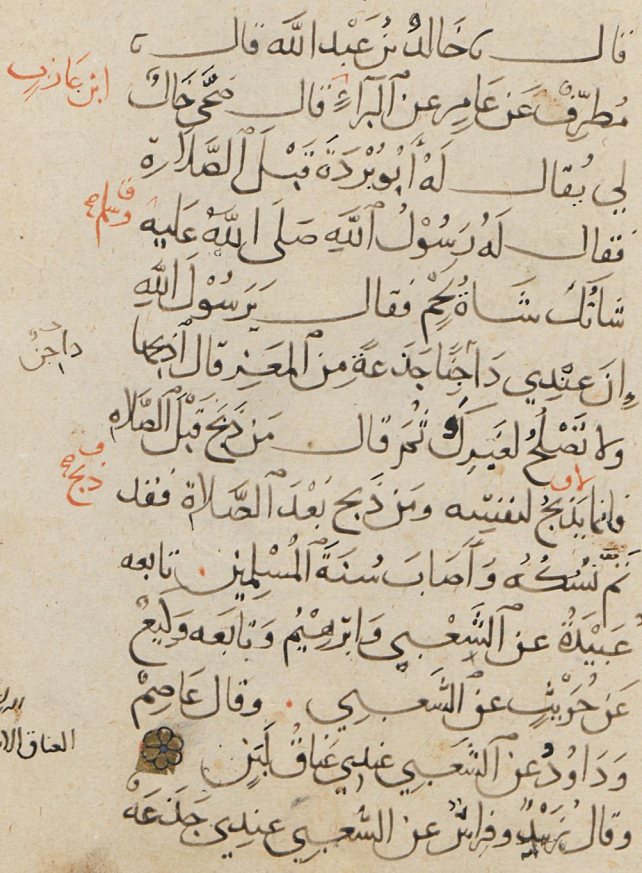 قال خَالِدُ بْنُ عَبْدِ اللَّه قال
مُطَرِّفٌ عَنْ عَامِرٍ عَنِ الْبَرَآءِ قال ضَحَّى خَالٌ
ابن عازب
لِي يُقال لَهُ أَبُو بُرْدَةَ قَبْلَ الصَّلَاة
فَقال لَهُ رَسُوْلُ اللَّهِ صَلَى اللَّهُ عَلَيه
وسلم
شَاتُكَ شَاةُ لَحْمٍ فَقال يَرَسُوْلَ اللَّهِ
إِنَ عِنْدِي دَاجِنًا جَذَعَةً مِنَ المَعَزِ قَالَ اذْبَحها
داجن
وَلا تَصْلُحُ لِغَيْرِكَ ثُمَّ قال مَنْ ذَبَحَ قَبْلَ الصَّلَاه
فَانما يَذْبَحُ لنفسه ومَن ذَبح بَعْدَ الصَّلاة فقد
ذبح
تَمَّ نُسُكُهُ وَأَصَابَ سُنَةَ الْمُسْلِمِين تابعه
عُبَيْدَةُ عَنِ الشَّعْبِي وَابْرهِيْمُ وَتَابَعَه وَكِيعٌ
عَن حُرَيْثٍ عن الشَّعبي وقال عَاصِمٌ
وَدَاوُدُ عن الشَّعبي عندي عَنَاقُ لَبَنٍ
العناق الا
وقال زُبَيْدٌ وفراسٌ عن الشَّعبي عندي جَذَعَةٌ